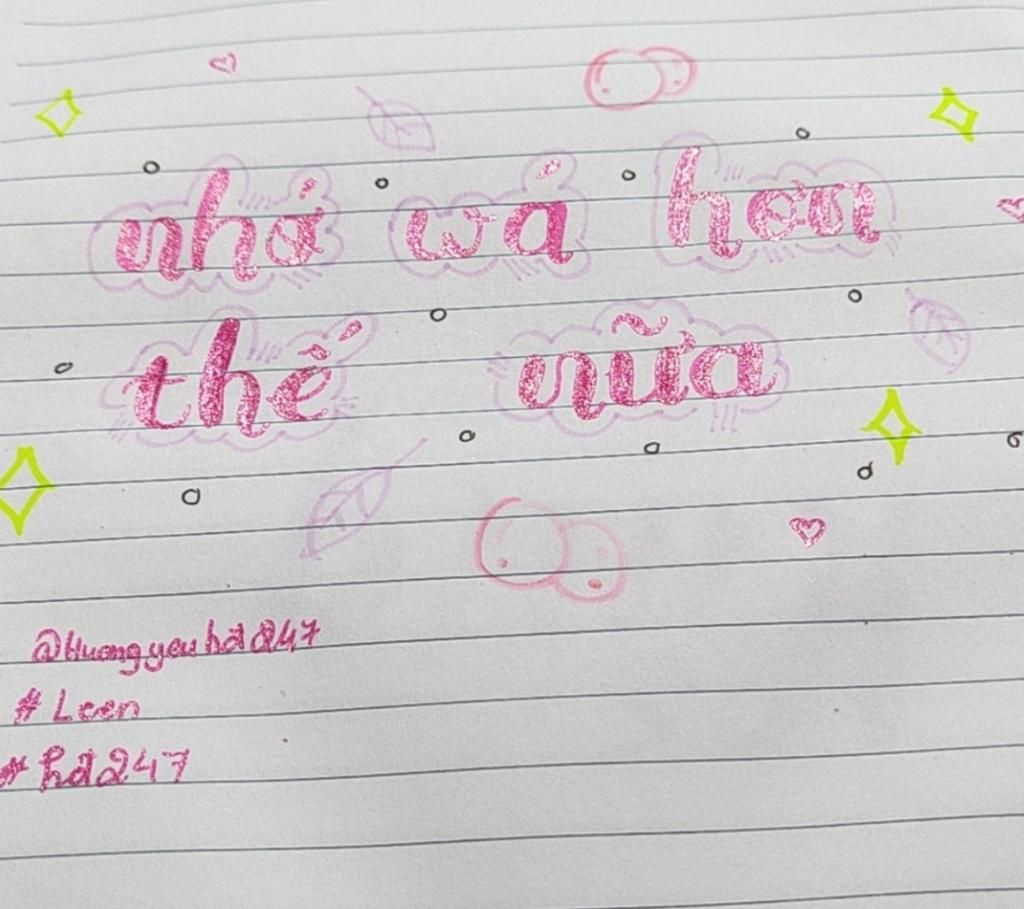 nhớ wá hơn
thế nữa
@Huongyeuhd247
# Leen
# hd247